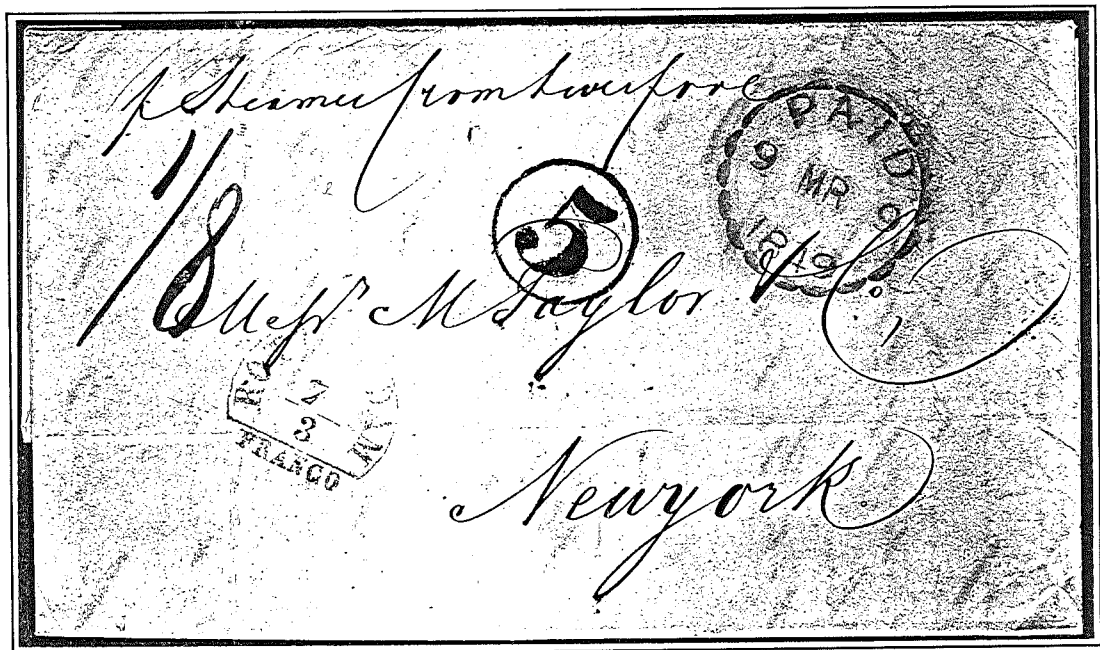 p Steamer from Liverpool
PAID
9 MR 9
1849
1/8
5
Messrs M Taylor & Co.
7
3
FRANCO
Newyork